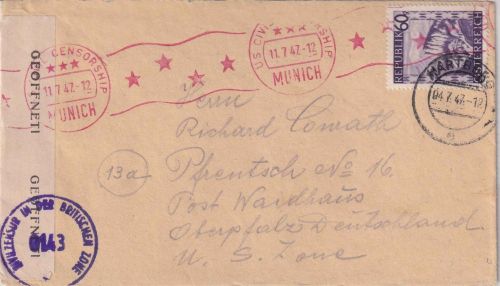 U.S. CIVIL CENSORSHIP
11.7.47.-12
MUNICH
CENSORSHIP
11.7.47.-12
MUNICH
60g
REPUBLIK ÖSTERREICH
04.7.47.-12
GEÖFFNET!
GEÖFFNET!
Herrn
Richard Conrath
13a
Pfrentsch No 16.
Post Waidhaus
Oberpfalz Deutschland
U. S. Zone
ZIVILZENSUR IN DER BRITISCHEN ZONE
0143